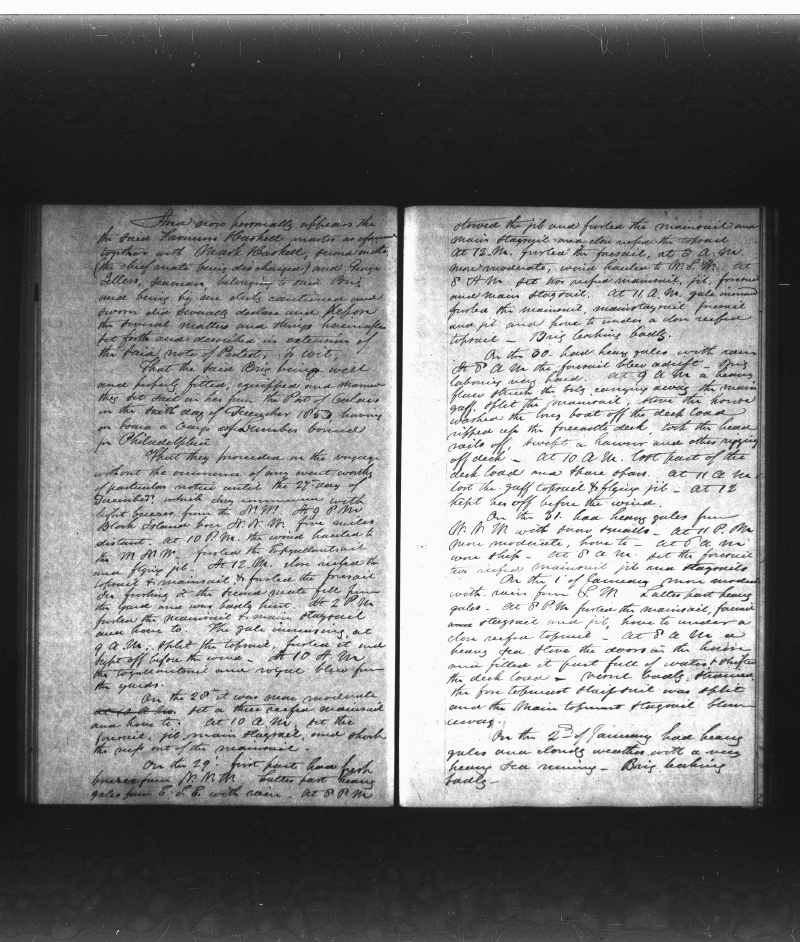 And now personally appears the
the said Haskell master as aforesaid
together with Mark Haskell, second mate
(the chief mate being discharged) and George
Sellers, Seaman, belonging to said Brig
and being by me duly cautioned and
sworn did severally declare and depose
the several matters and things hereinafter
set forth and described in extension of
the said note of Protest, to wit;
That the said Brig being well
and properly fitted, equipped and manned
they set sail in her from the Port of Calais
in the sixth day of December 1853 having
on board a cargo of Lumber bound
for Philadelphia
That they proceeded on the voyage
without the occurrence of any event worthy
of particular notice until the 27 day of
December, which day commenced with
light breezes from the N.W. At 9 P.M
Block Island bore N.N.W. five miles
distant. At 10 P.M. the wind hauled to
the W.N.W. furled the topgallantsail
and flying jib. At 12 M. close reefed the
topsail & mainsail, & furled the foresail
In furling it the second mate fell from
the yard and was badly hurt. At 2 P.M
furled the mainsail & main staysail
and hove to. The gale increasing, at
9 A.M. split the topsail, furled it and
kept off before the wind. At 10 A.M
the topgallantsail and royal blew from
the yards.
On the 28 it was more moderate
set a three reefed mainsail
and hove to. At 10 A.M. set the
foresail, jib, main staysail, and shook
the reef out of the mainsail.
On the 29 first part had fresh
breezes from N.N.W. Latter part heavy
gales from E.S.E. with rain. At 8 P.M
stowed the jib and furled the mainsail and
main staysail and close reefed the topsail
At 12 M. furled the foresail, at 3 A.M.
more moderate, wind hauled to W.S.W. At
8 A.M. set two reefed mainsail, jib, foresail
and main staysail. At 11 A.M. gale
furled the mainsail, mainstaysail foresail
and jib and hove to under a close reefed
topsail - Brig leaking badly.
On the 30 had heavy gales with rain
At 8 A M the foresail blew adrift - Brig
laboring very hard. At 9 A.M a heavy
flaw struck the brig carrying away the main
gaff, split the mainsail, stove the house
washed the long boat off the deck load
ripped up the forecastle deck, took the head
rails off, swept a hawser and other rigging
off deck - At 10 A.M. lost part of the
deck load and spare spars. At 11 A.M.
lost the gaff topsail & flying jib - At 12
kept her off before the wind.
On the 31 had heavy gales from
W.N.W. with snow squalls - At 11 P.M
more moderate, hove to - At 6 A M
wore ship - At 8 A M. set the foresail
two reefed mainsail jib and staysails
On the 1st of January more moderate
with rain from S.W. Latter part heavy
gales. At 8 P.M furled the mainsail, foresail
staysail and jib, hove to under a
close reefed topsail - At 8 A M a
heavy sea stove the doors in the house
and filled it part full of water & shifted
the deck load - vessel badly strained
the fore topmast staysail was split
and the Main topmast staysail blew
away.
On the 2d of January had heavy
gales and cloudy weather with a very
heavy sea running - Brig leaking
badly -